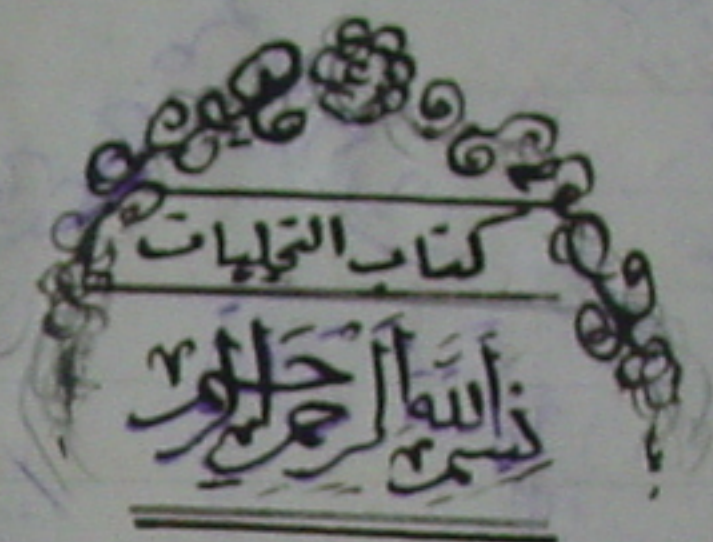 كتاب التجليات
بسم الله الرحمن الرحيم